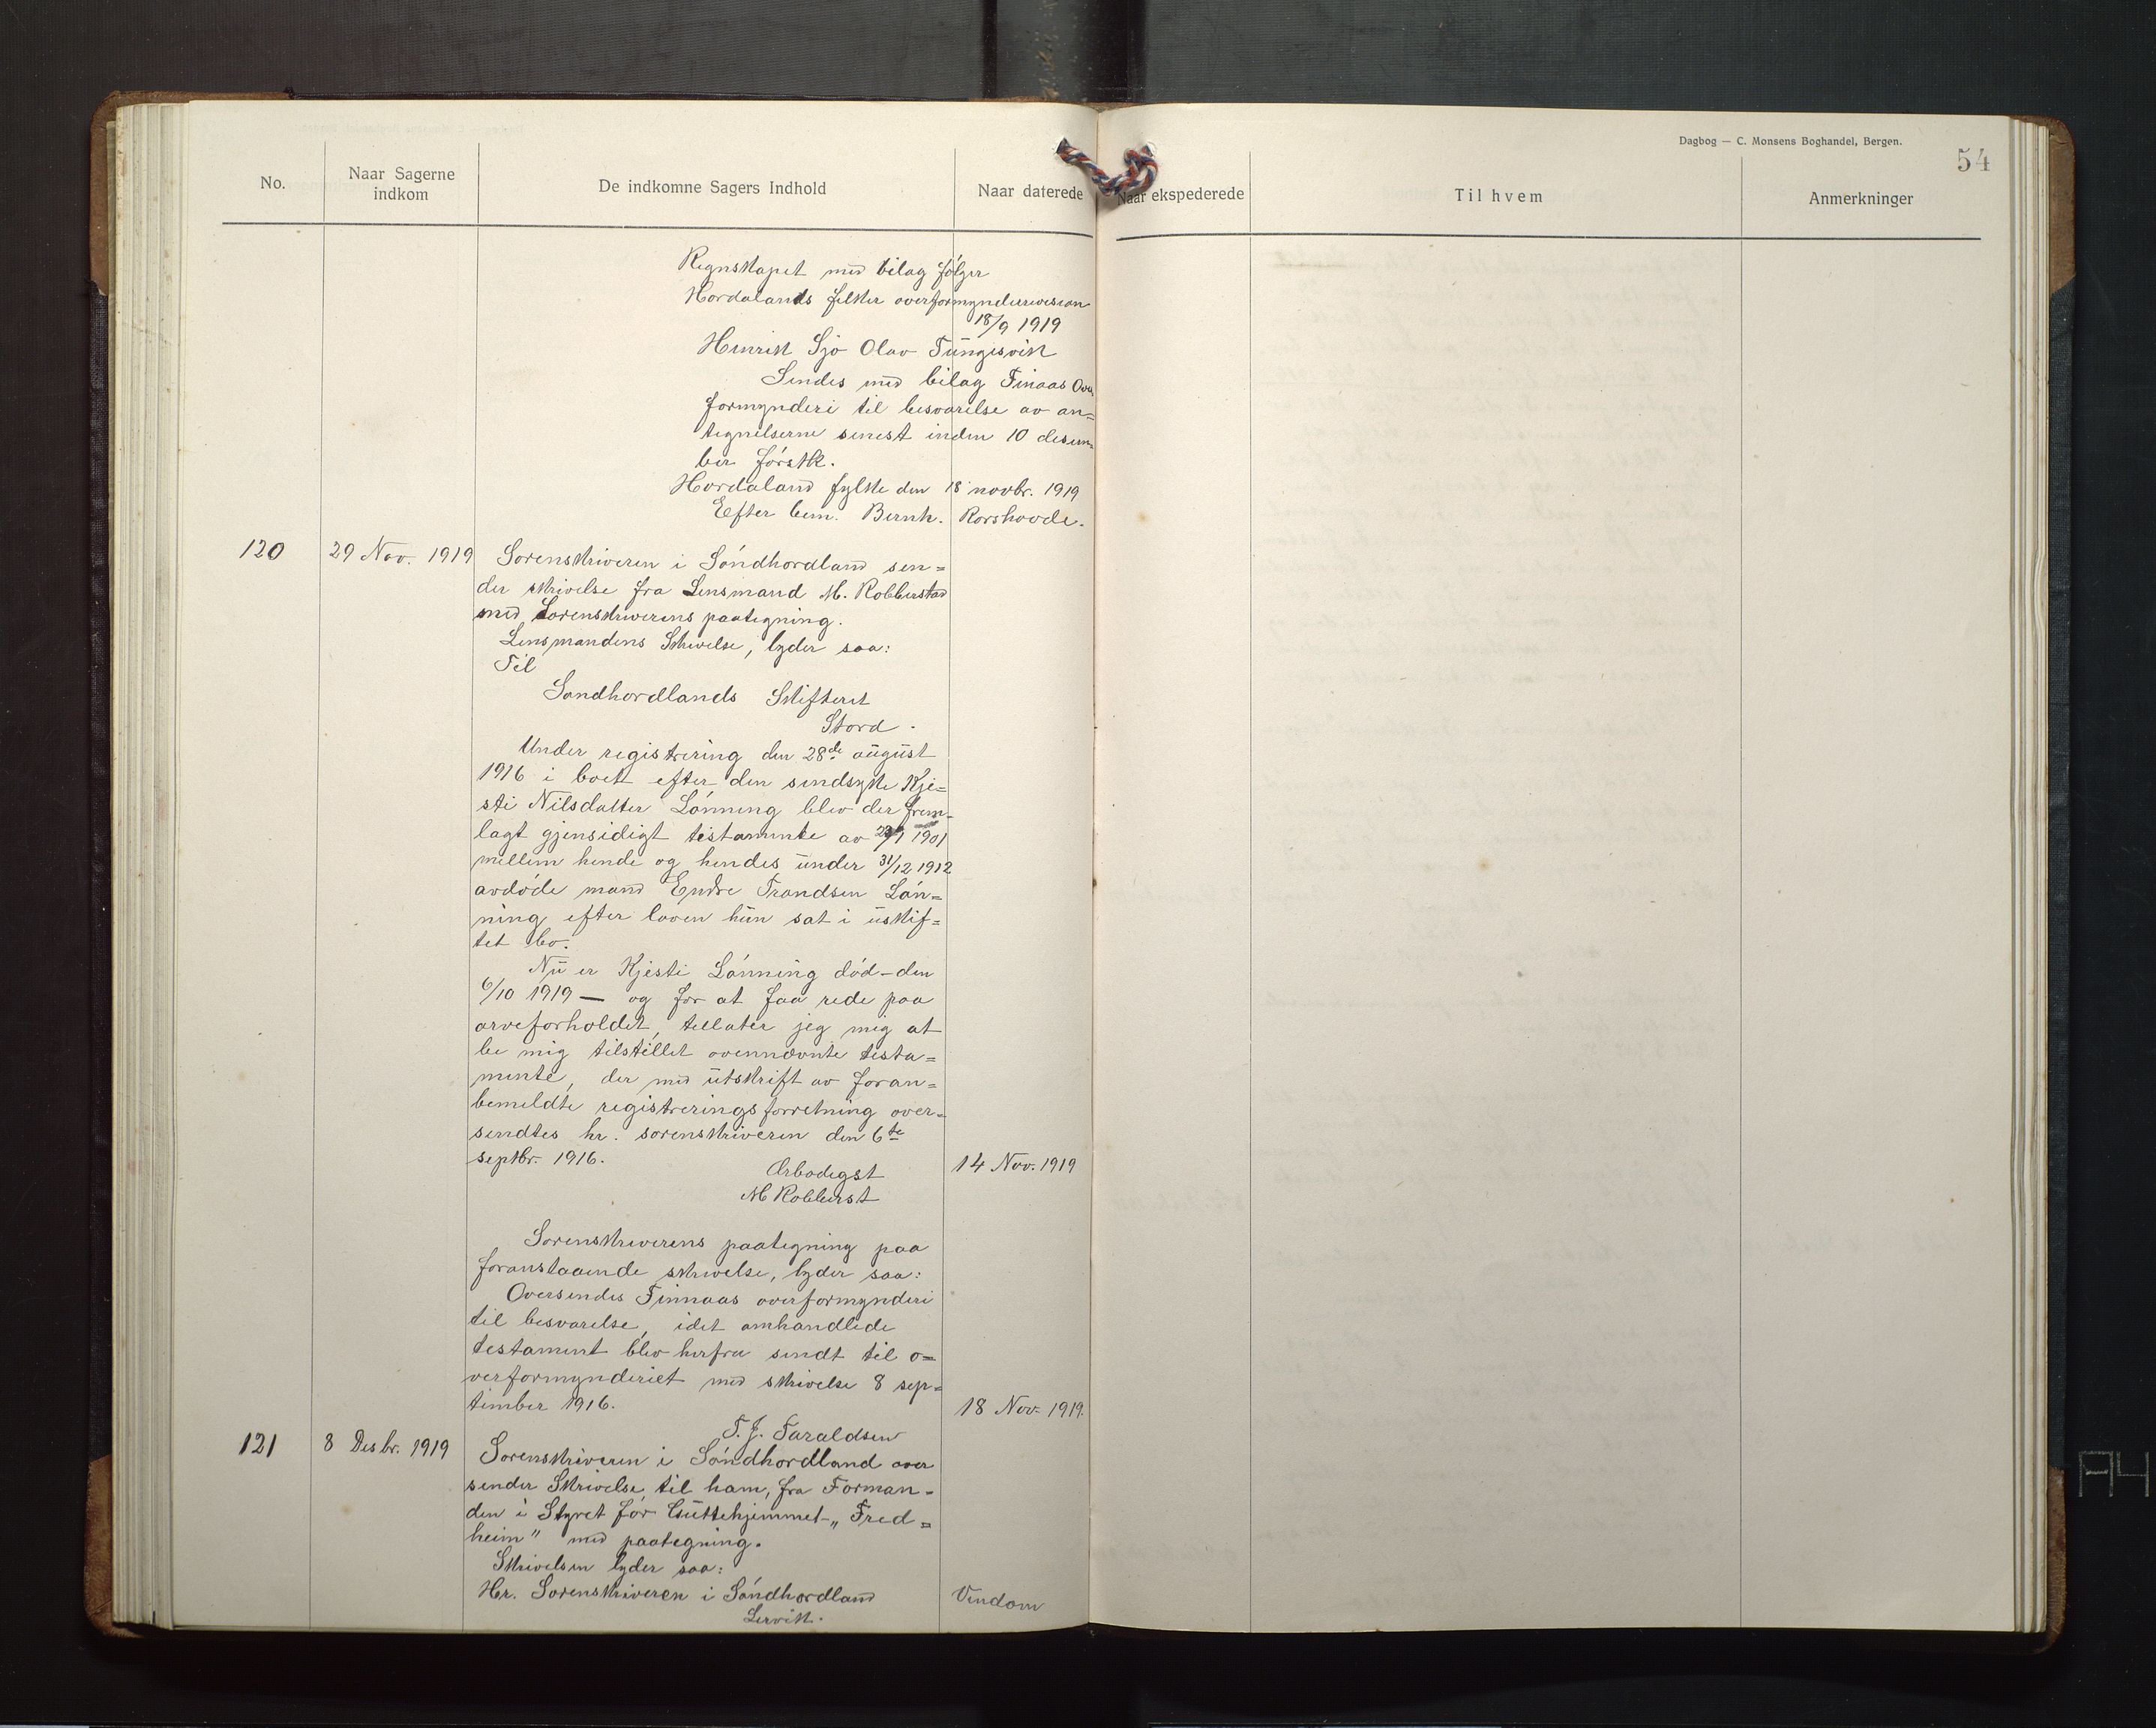 Dagbog — C. Monsens Boghandel, Bergen.
54
No.
Naar Sagerne
indkom
De indkomne Sagers Indhold
Naar daterede
Naar ekspederede
Til hvem
Anmerkninger
Regnskapet med bilag følger
Hordalands felker overformynderrevision
18/9 1919
Henrik Sjo Olav Tungisvik
Sendes med bilag Finaas Over
formynderi til besvarelse av an=
tegnelserne senest inden 10 desem=
ber førstk.
Hordaland fylke den 18 novbr. 1919
Efter bem. Bernh. Rorshovde.
120
29 Nov. 1919
Sorenskriveren i Søndhordland sen=
der skrivelse fra Lensmand M. Robberstad
med Sorenskriverens paategning.
Lensmandens Skrivelse, lyder saa:
Til
Sondhordlands Skifteret
Stord.
Under registrering den 28de august
1916 i boet efter den sindsyke Kje=
sti Nilsdatter Lønning blev der frem=
lagt gjensidigt testamente av 1901
mellem hende og hendes under 31/12 1912
avdøde mand Endre Trondsen Løn=
ning efter loven hun sat i uskif=
tet bo.
Nu er Kjesti Lønning død - den
6/10 1919 — og for at faa rede paa
arveforholdet, tillater jeg mig at
be mig tilstillet ovennævnte testa=
mente, der med utskrift av foran=
bemeldte registreringsforretning over=
sendtes hr. sorenskriveren den 6te
septbr. 1916.
Ærbødigst
M Robberst
14 Nov. 1919
Sorenskriverens paategning paa
foranstaaende skrivelse, lyder saa:
Oversendes Finnaas overformynderi
til besvarelse, idet omhandlede
testament blev herfra sendt til o=
verformynderiet med skrivelse 8 sep=
tember 1916.
18 Nov. 1919.
T. J. Taraldsen
121
8 Desbr. 1919
Sorenskriveren i Søndhordland over
sender Skrivelse, til ham, fra Forman=
den i Styret for Guttehjemmet „Fred=
heim" med paategning.
Skrivelsen lyder saa:
Hr. Sorenskriveren i Søndhordland
Lervik.
Vindom